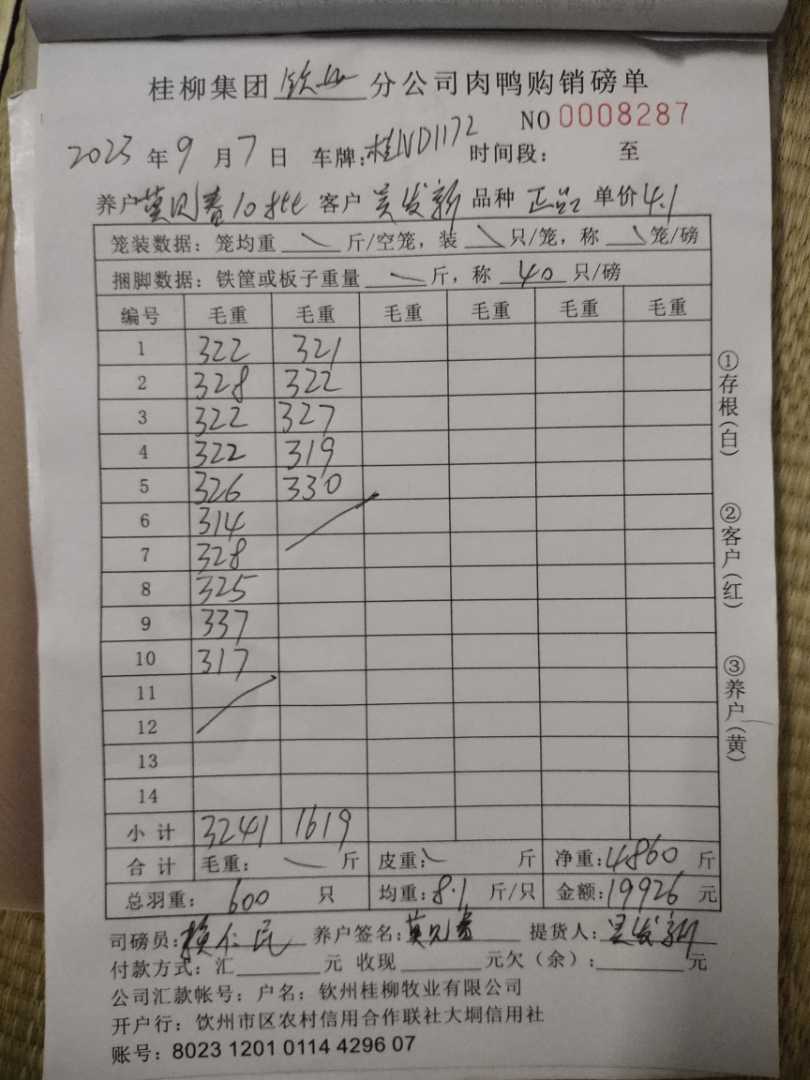 桂柳集团钦业分公司肉鸭购销磅单
NO 0008287
2023年9月7日 车牌:桂ND1172 时间段: 至
养户莫见春10批 客户吴发新 品种正品 单价4.1
笼装数据:笼均重 斤/空笼,装 只/笼,称 笼/磅
捆脚数据:铁筐或板子重量 斤,称 40 只/磅
编号 毛重 毛重 毛重 毛重 毛重 毛重
1 322 321
2 328 322
3 322 327
4 322 319
5 326 330
6 314
7 328
8 325
9 337
10 317
11
12
13
14
小计 3241 1619
合计 毛重: 斤 皮重: 斤 净重:4860 斤
总羽重:600 只 均重:8.1 斤/只 金额:19926 元
司磅员:赖仁民 养户签名:莫见春 提货人:吴发新
付款方式:汇 元 收现 元欠(余): 元
公司汇款帐号:户名:钦州桂柳牧业有限公司
开户行:饮州市区农村信用合作联社大垌信用社
账号:8023 1201 0114 4296 07
①存根(白)
②客户(红)
③养户(黄)